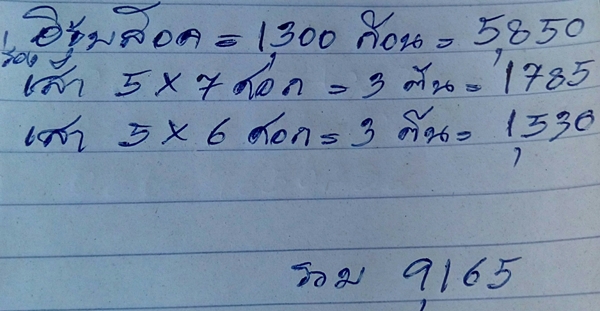 อิฐบล๊อค = 1,300 ก้อน = 5,850
เสา 5 x 7 ศอก = 3 ต้น = 1785
เสา 5 x 6 ศอก = 3 ต้น = 1,530
รวม 9,165